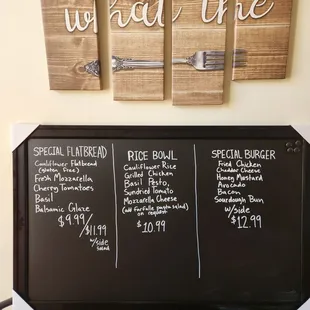 what the
SPECIAL FLATBREAD
Cauliflower Flatbread
(gluten free)
Fresh Mozzarella
Cherry Tomatoes
Basil
Balsamic Glaze
$9.99/
$11.99
w/side
salad
RICE BOWL
Cauliflower Rice
Grilled Chicken
Basil Pesto,
Sundried Tomato
Mozzarella Cheese
(add farfalle pasta salad)
on request
$10.99
SPECIAL BURGER
Fried Chicken
Cheddar Cheese
Honey Mustard
Avocado
Bacon
Sourdough Bun
w/side
$12.99